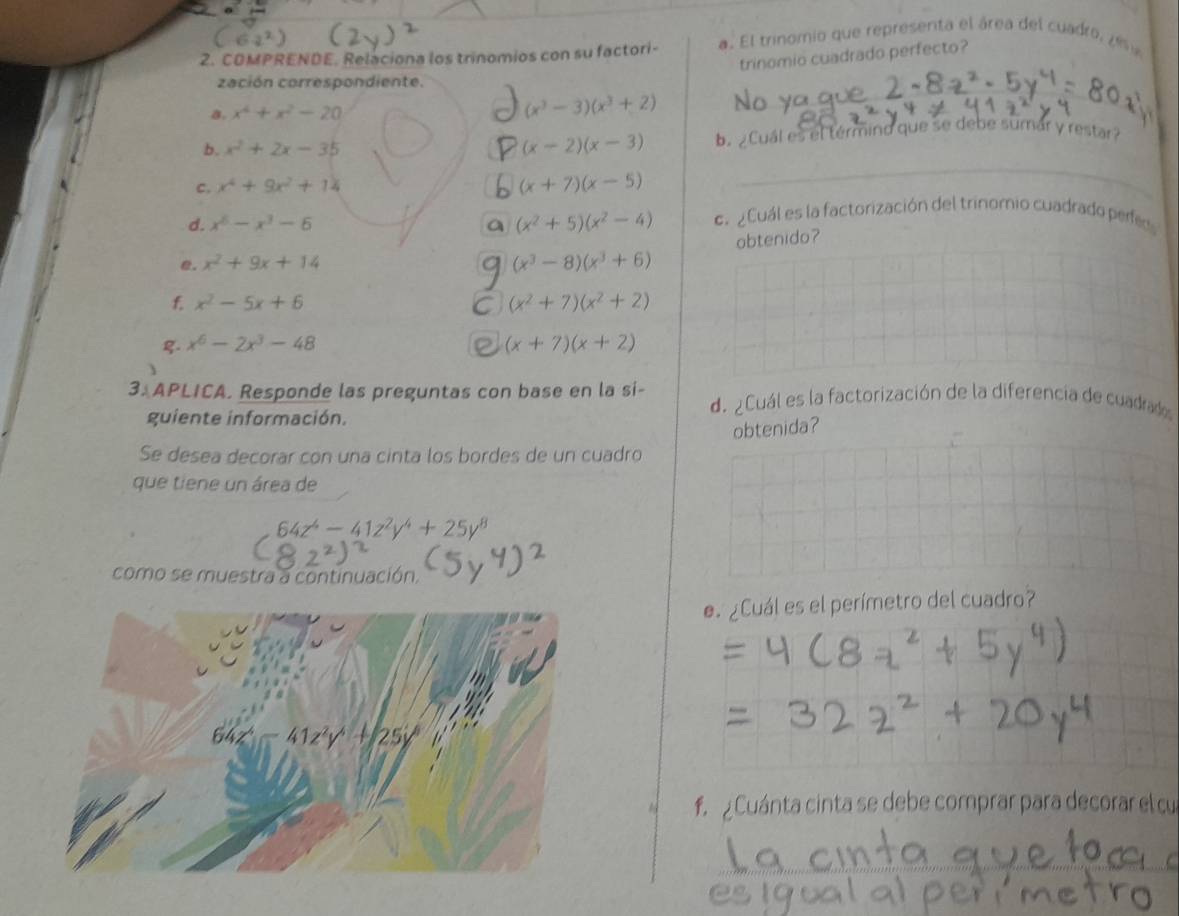 (6z²) (2y)²
2. COMPRENDE. Relaciona los trinomios con su factori-
zación correspondiente.
a. x⁴ + x² − 20
d (x³ − 3)(x³ + 2)
b. x² + 2x − 35
f (x − 2)(x − 3)
c. x⁴ + 9x² + 14
b (x + 7)(x − 5)
d. x⁶ − x³ − 6
a (x² + 5)(x² − 4)
e. x² + 9x + 14
g (x³ − 8)(x³ + 6)
f. x² − 5x + 6
c (x² + 7)(x² + 2)
g. x⁶ − 2x³ − 48
e (x + 7)(x + 2)
3. APLICA. Responde las preguntas con base en la si-
guiente información.
Se desea decorar con una cinta los bordes de un cuadro
que tiene un área de
64z⁴ − 41z²y⁴ + 25y⁸
(8z²)² (5y⁴)²
como se muestra a continuación.
64z⁴ − 41z²y⁴ + 25y⁸
a. El trinomio que representa el área del cuadro, ¿es
trinomio cuadrado perfecto?
No ya que 2-8z²-5y⁴=80z²y⁴
80z²y⁴ ≠ 41z²y⁴
b. ¿Cuál es el término que se debe sumar y restar?
c. ¿Cuál es la factorización del trinomio cuadrado perfecto
obtenido?
d. ¿Cuál es la factorización de la diferencia de cuadrados
obtenida?
e. ¿Cuál es el perímetro del cuadro?
= 4(8z² + 5y⁴)
= 32z² + 20y⁴
f. ¿Cuánta cinta se debe comprar para decorar el cu
La cinta que toca c
es igual al perímetro